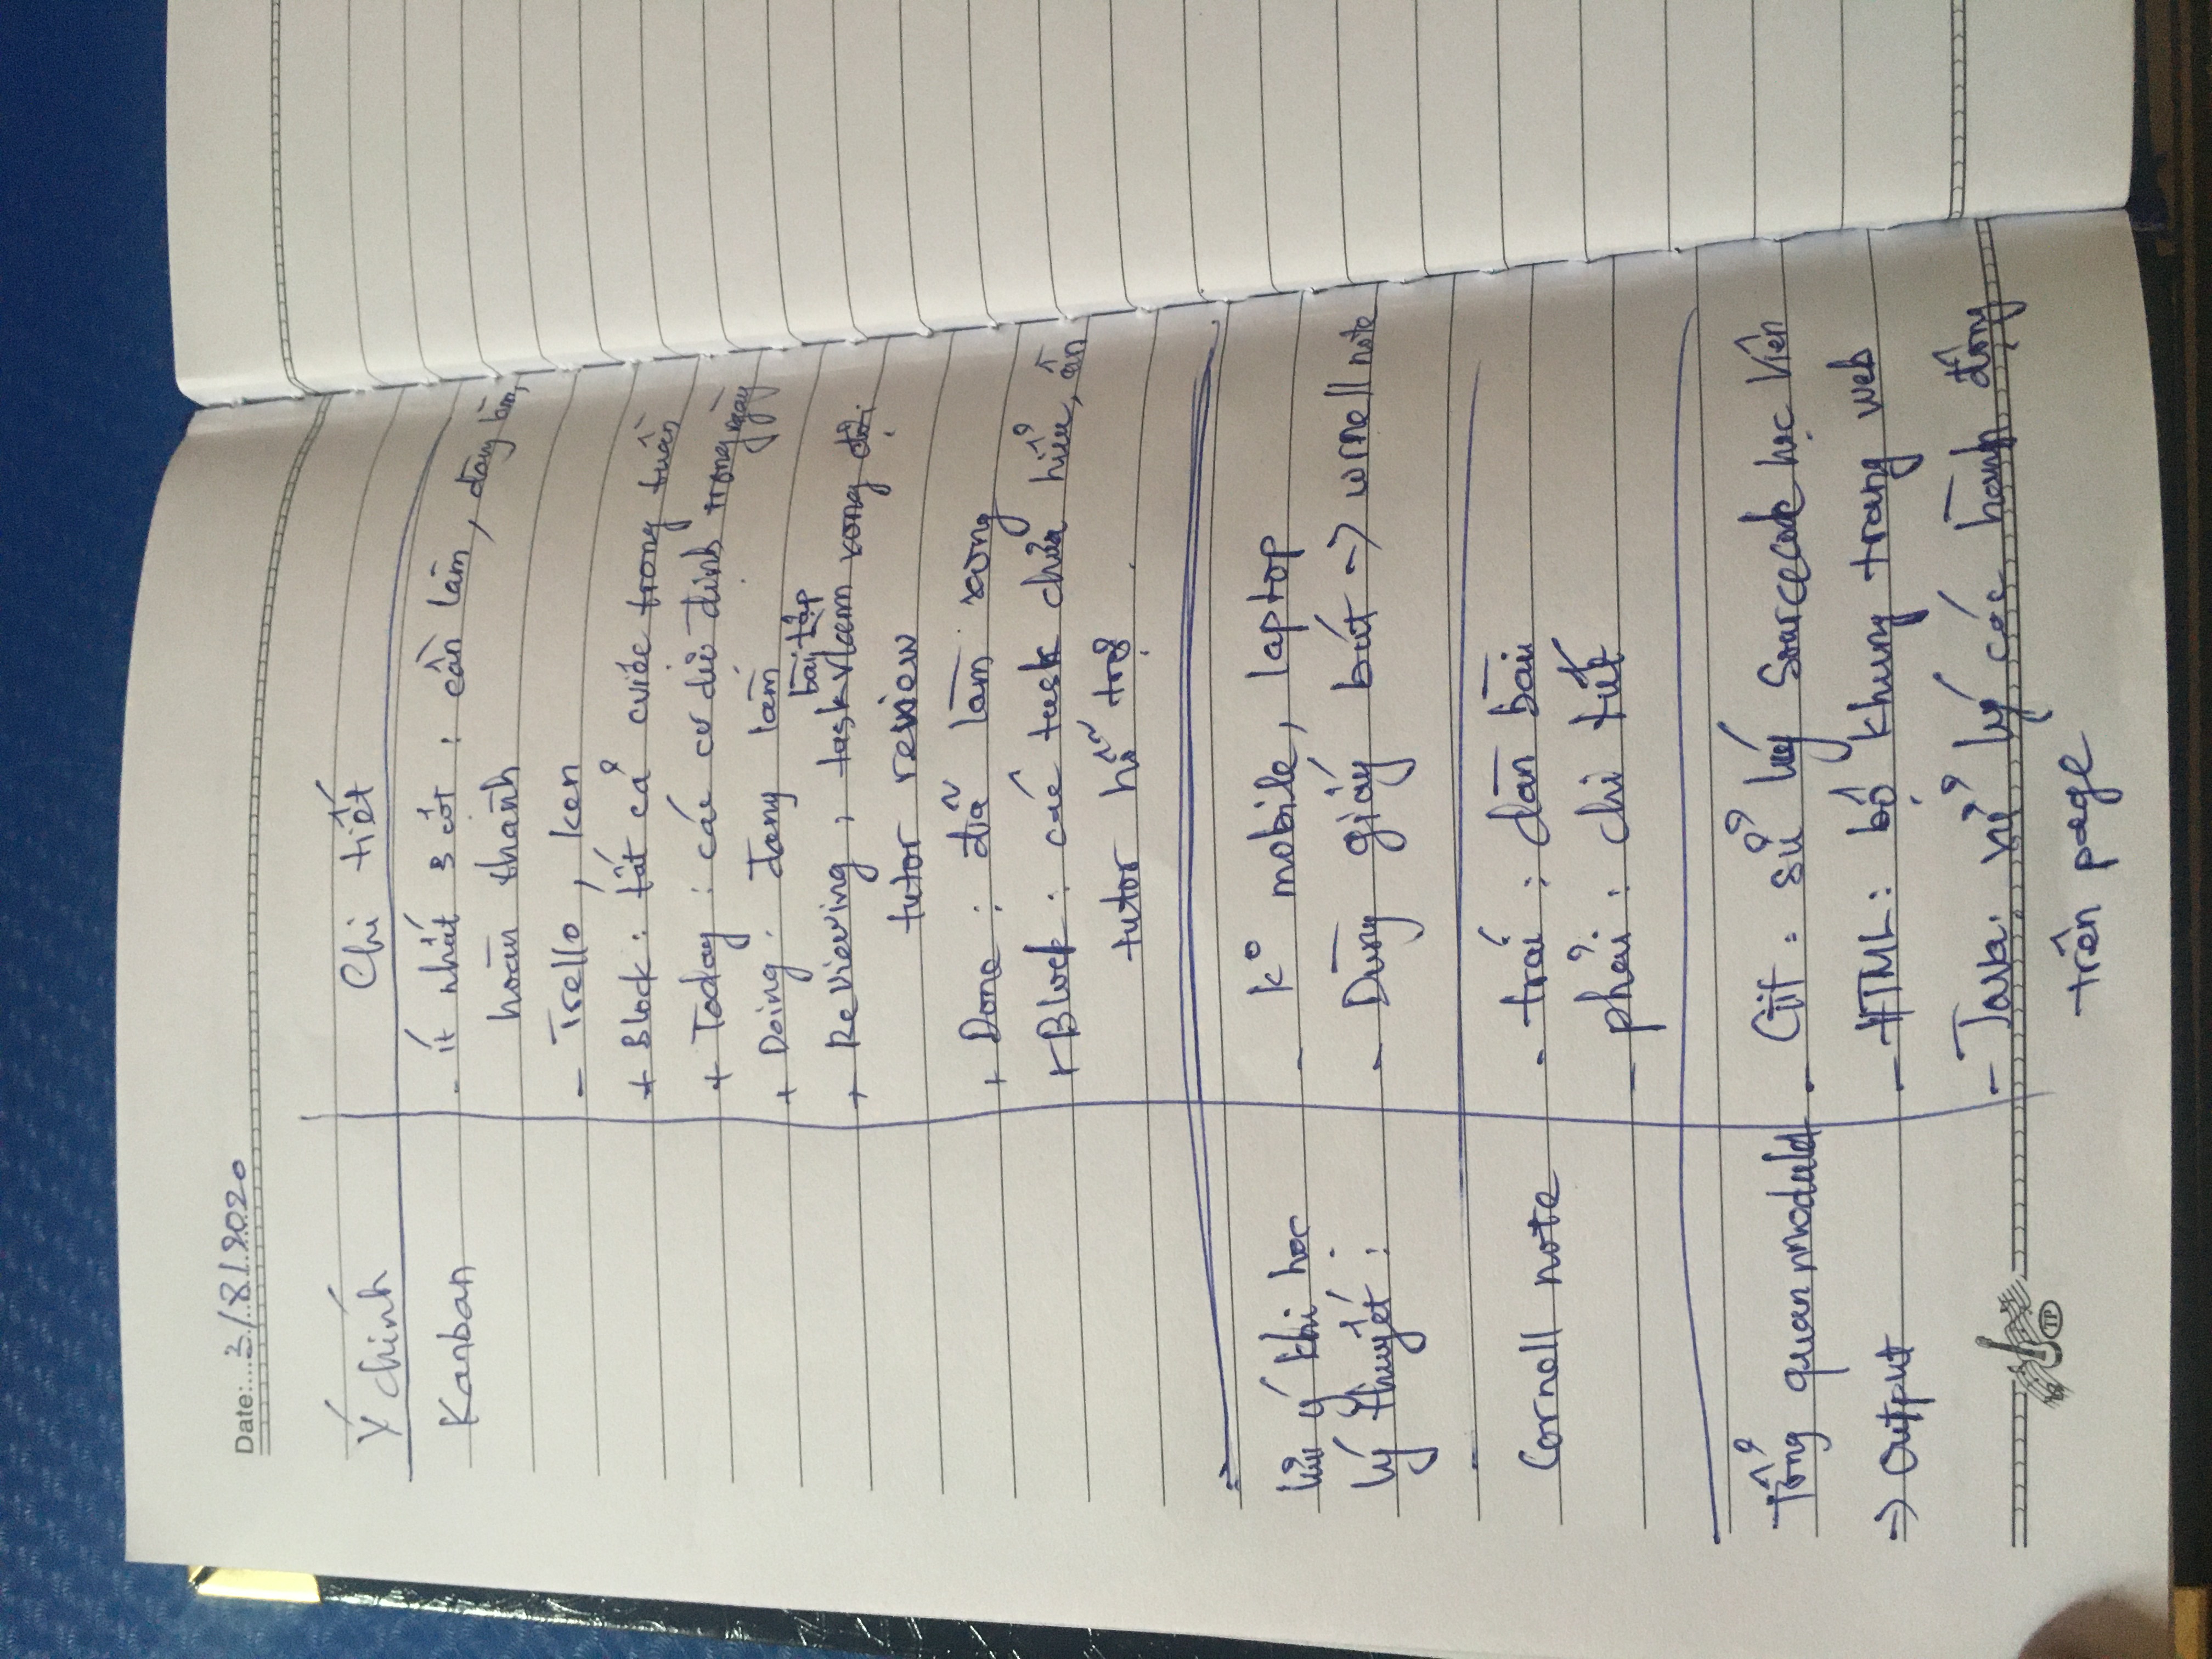 Date: 3/8/2020
Ý chính
Chi tiết
Kanban
- ít nhất 3 cột : cần làm, đang làm,
hoàn thành
- Trello, ken
+ Block : tất cả cviệc trong tuần
+ Today : các cv dự định trong ngày
+ Doing : đang làm
bài tập
+ Reviewing : task v làm xong đợi
tutor review
+ Done : đã làm xong
+ Block : các task chưa hiểu, cần
tutor hỗ trợ
lưu ý khi học
- k° mobile, laptop
lý thuyết :
- Dùng giấy bút -> cornell note
Cornell note
- trái : dàn bài
- phải : chi tiết
Tổng quan module1
- Git : sử lý Sourcecode học viên
-> Output
- HTML : bộ khung trang web
- Java : xử lý các hành động
TP
trên page